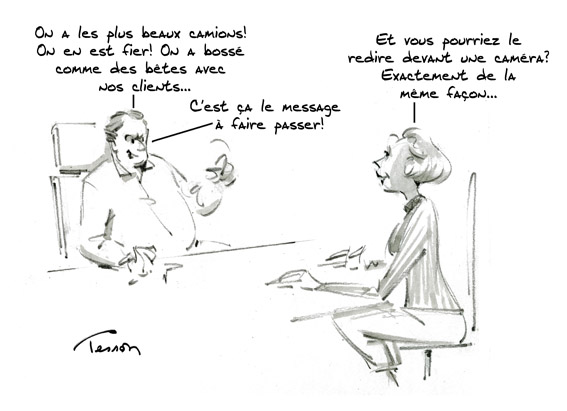 On a les plus beaux camions!
On en est fier! On a bossé
comme des bêtes avec
nos clients...
C'est ça le message
à faire passer!
Et vous pourriez le
redire devant une caméra?
Exactement de la
même façon...
Tesson